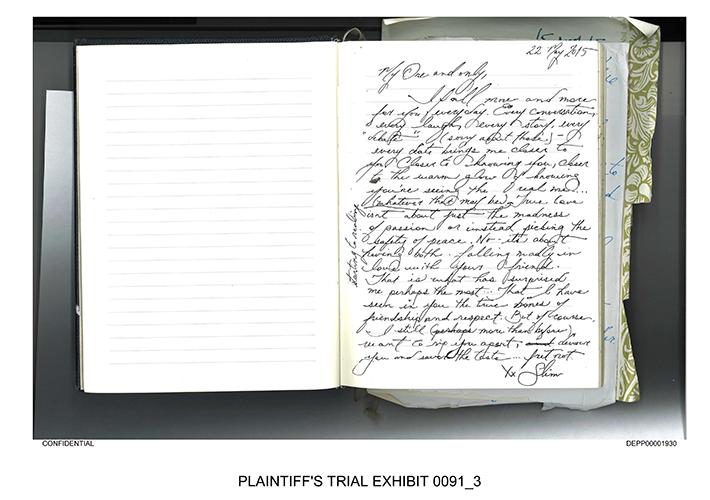 22 May 2015
My One and only,
I fall more and more
for you everyday. Every conversation,
every laugh, every story, every
"debate" (sorry about those) -
every date brings me closer to
you. Closer to knowing you, closer
to the warm glow of knowing
you're seeing the real me...
(whatever that may be). True love
isnt about just the madness
of passion or instead picking the
safety of peace. No - its about
having both. falling madly in
love with your friend.
That is what has surprised
me perhaps the most... That I have
seen in you the true bones of
friendship and respect. But of course,
I still (perhaps more than before)
want to rip you apart, devour
you and savor the taste... fret not
Xx Slim
starting to realize
CONFIDENTIAL
DEPP00001930
PLAINTIFF'S TRIAL EXHIBIT 0091_3